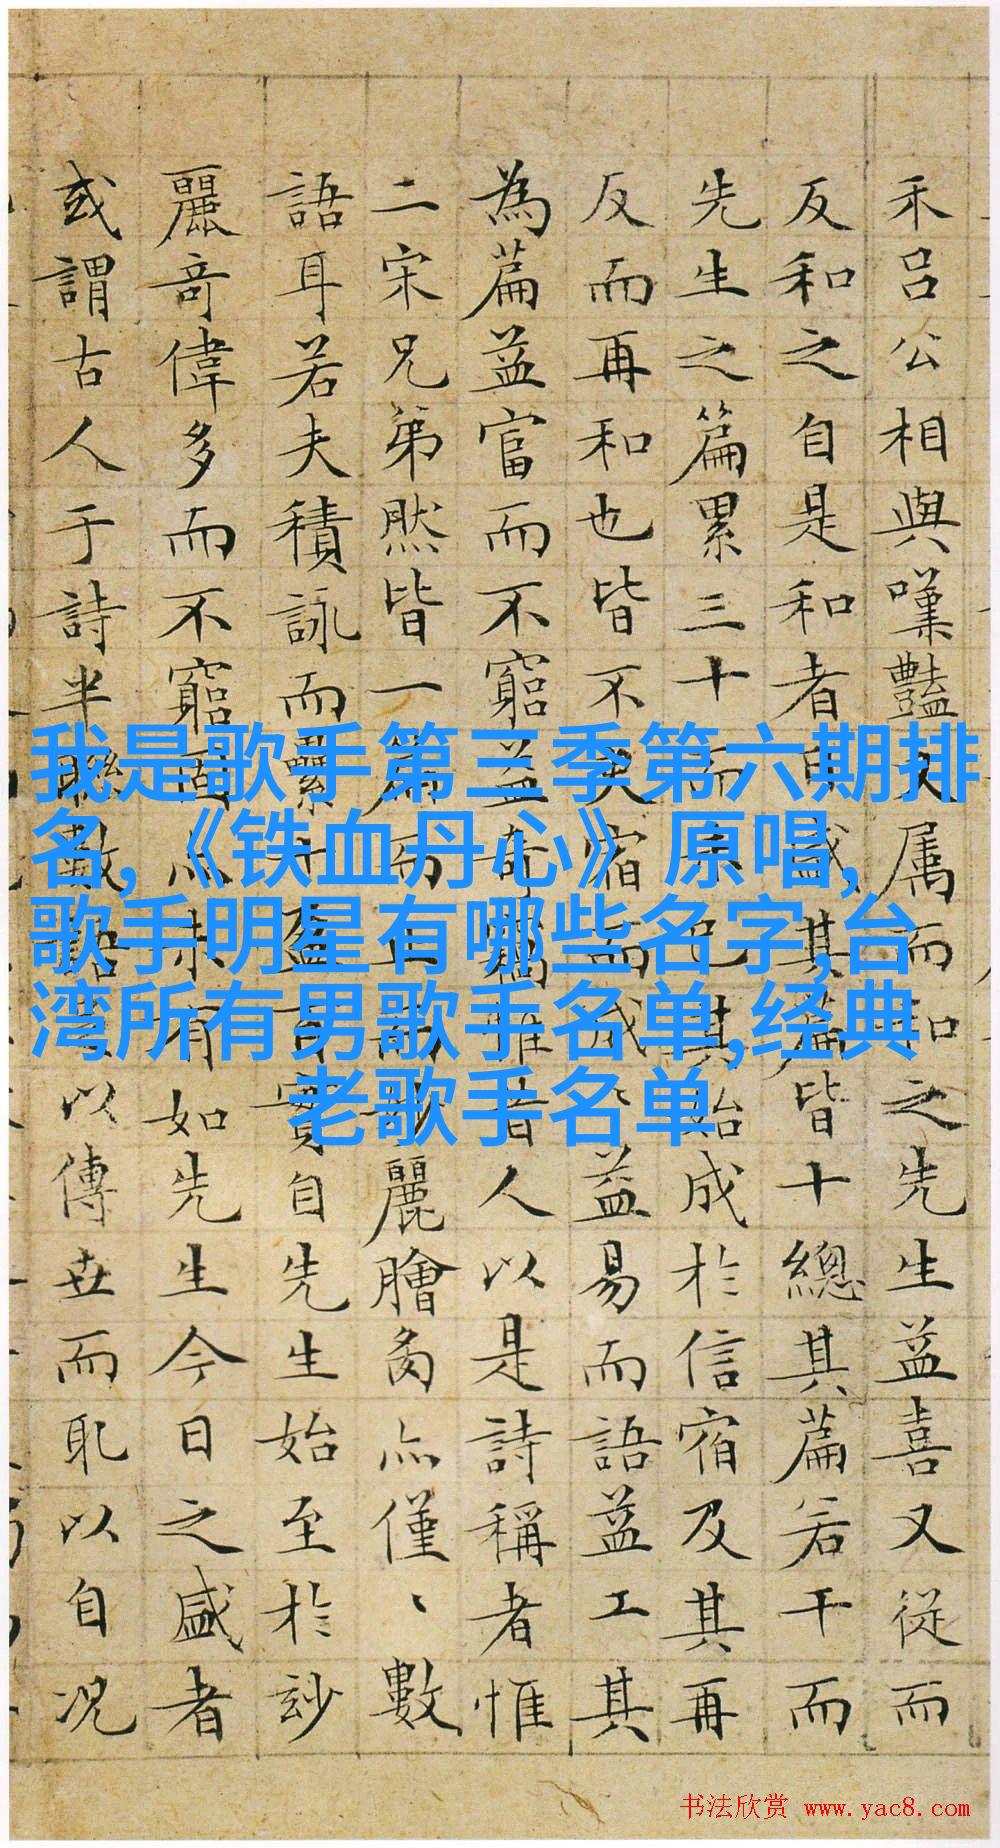 禾吕公相與嘆豔属而和之先生益喜又従而
反和之自是和者盛其篇皆十總其篇若干而
先生之篇累三十而已其始成於信宿及其再
反而再和也皆不宿而成益易而語益工其
為篇益富而不窮益奇惟昔人以是詩稱者惟
二宋兄弟然皆一篇而麗膾僅数
語耳若夫積詠而纍十盈百實自先生始至於玅
麗奇偉多而不窮固未有如先生今日之盛者
或謂古人于詩半聯數語以傳世而耻以自况
我是歌手第三季第六期排
名,《铁血丹心》原唱,
歌手明星有哪些名字,台
湾所有男歌手名单,经典
老歌手名单
书法欣赏 www.yac8.com